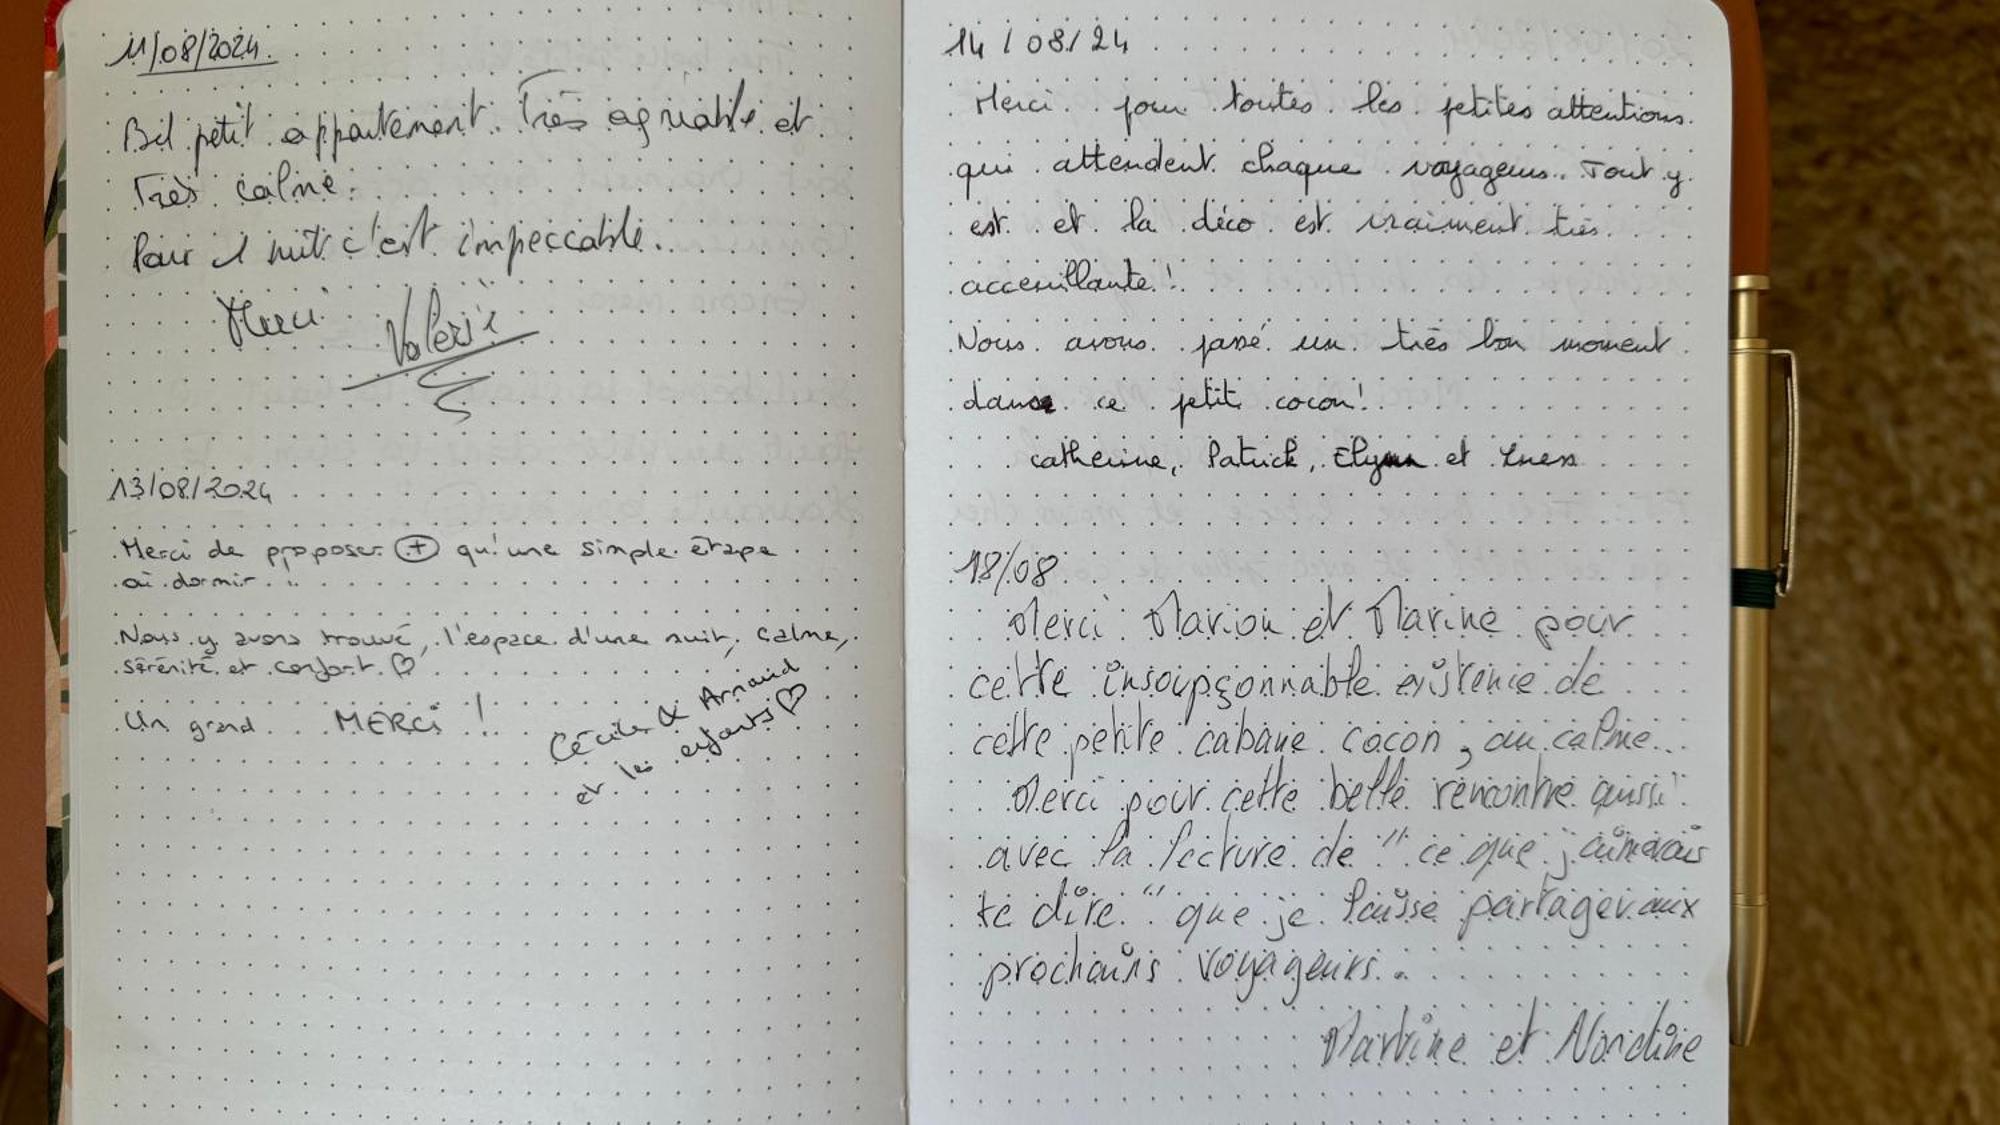 11/08/2024.
Bel petit appartement. Très agréable et
Très calme.
Pour 1 nuit c'est impeccable.
Merci Valérie
13/08/2024
Merci de proposer + qu'une simple étape
où dormir...
Nous y avons trouvé, l'espace d'une nuit, calme,
sérénité et confort. ♡
Un grand MERCI !
Cécile & Arnaud
et les enfants ♡
14/08/24
Merci pour toutes les petites attentions
qui attendent chaque voyageurs. Tout y
est et la déco est vraiment très
acceuillante !
Nous avons passé un très bon moment
dans ce petit cocon !
Catherine, Patrick, et
18/08
Merci Marion et Marine pour
cette insoupçonnable existence de
cette petite cabane cocon, au calme...
Merci pour cette belle rencontre aussi
avec la lecture de "ce que j'aimerais
te dire" que je laisse partager aux
prochains voyageurs.
Martine et Nordine